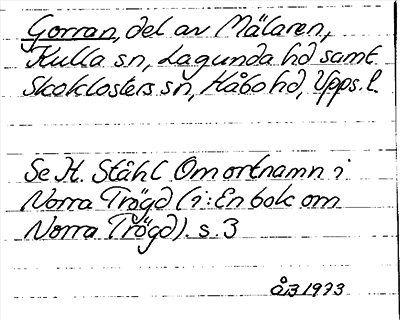 Gorran, del av Mälaren,
Kulla sn, Lagunda hd samt
Skoklosters sn, Håbo hd, Upps. l.
Se H. Ståhl Om ortnamn i
Norra Trögd (i: En bok om
Norra Trögd). s. 3
ÅB 1973